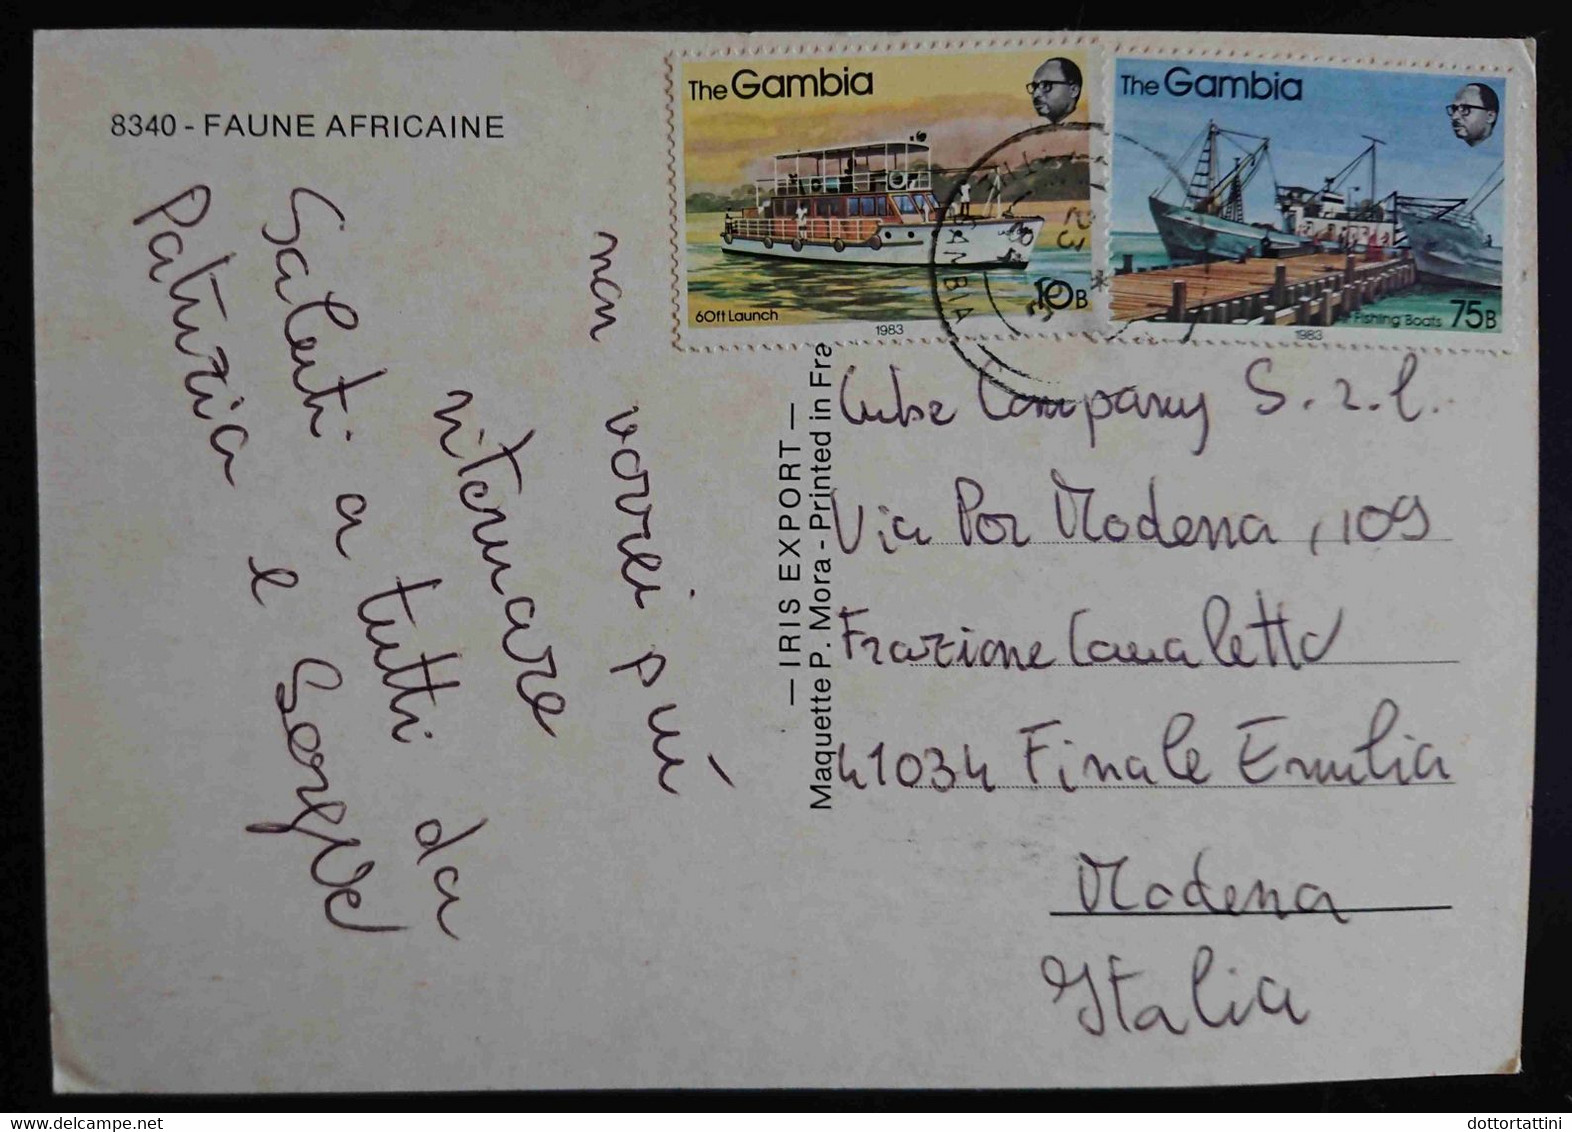 8340 - FAUNE AFRICAINE
The Gambia
60ft Launch
1983
10B
The Gambia
Fishing Boats
1983
75B
GAMBIA
non vorrei più
ritornare
Saluti a tutti da
Patrizia e
— IRIS EXPORT —
Maquette P. Mora - Printed in Fra
Cube Company S.r.l.
Via Per Modena, 109
Frazione Canaletto
41034 Finale Emilia
Modena
Italia
delcampe.net
dottortattini